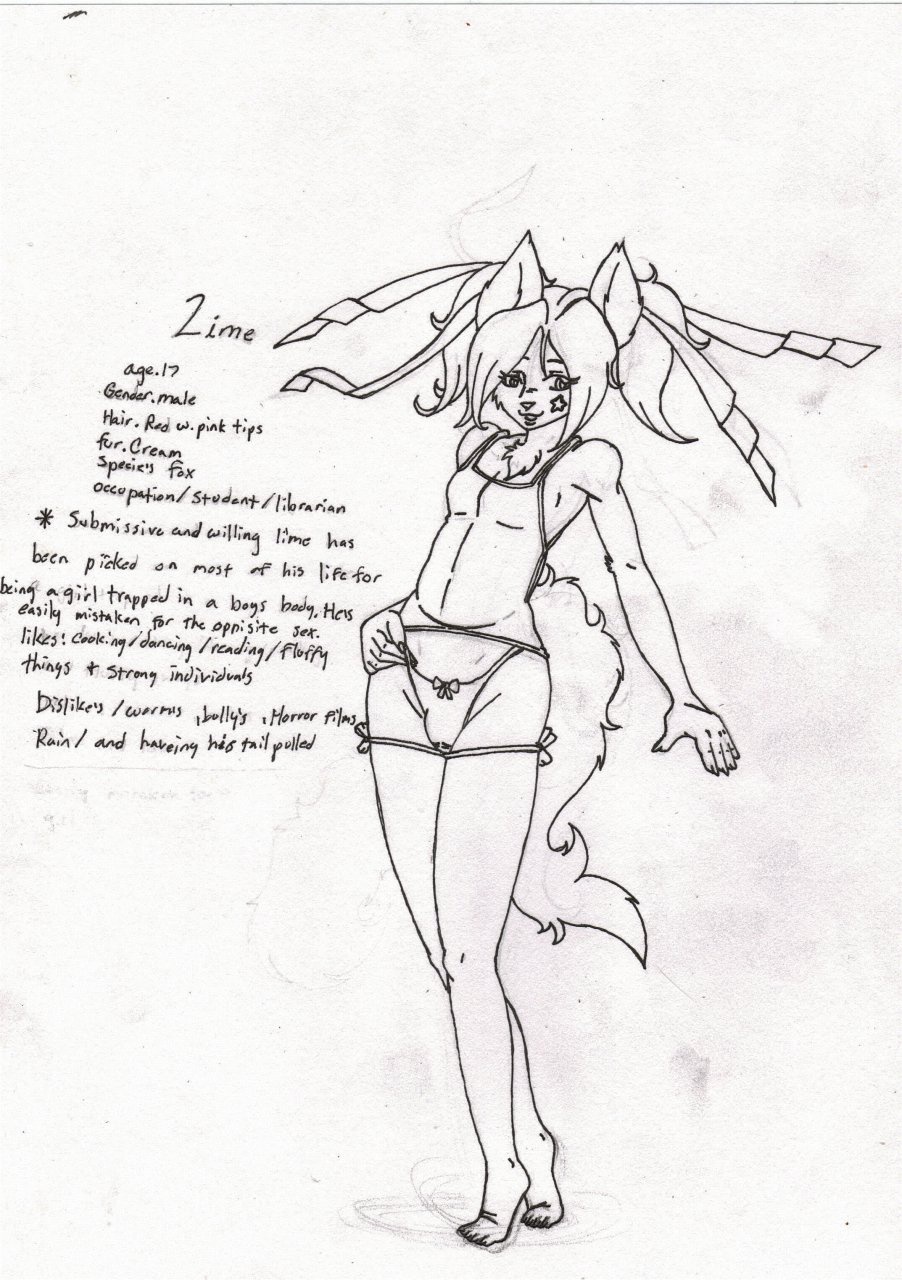 Lime
age.17
Gender.male
Hair. Red w. pink tips
fur. Cream
Specie's fox
occupation/student/librarian
* Submissive and willing lime has
been picked on most of his life for
being a girl trapped in a boys body. He is
easily mistaken for the oppisite sex.
likes: cooking/dancing/reading/fluffy
things + strong individuals
Dislike's/worms, bully's, Horror films
Rain/ and haveing his tail pulled